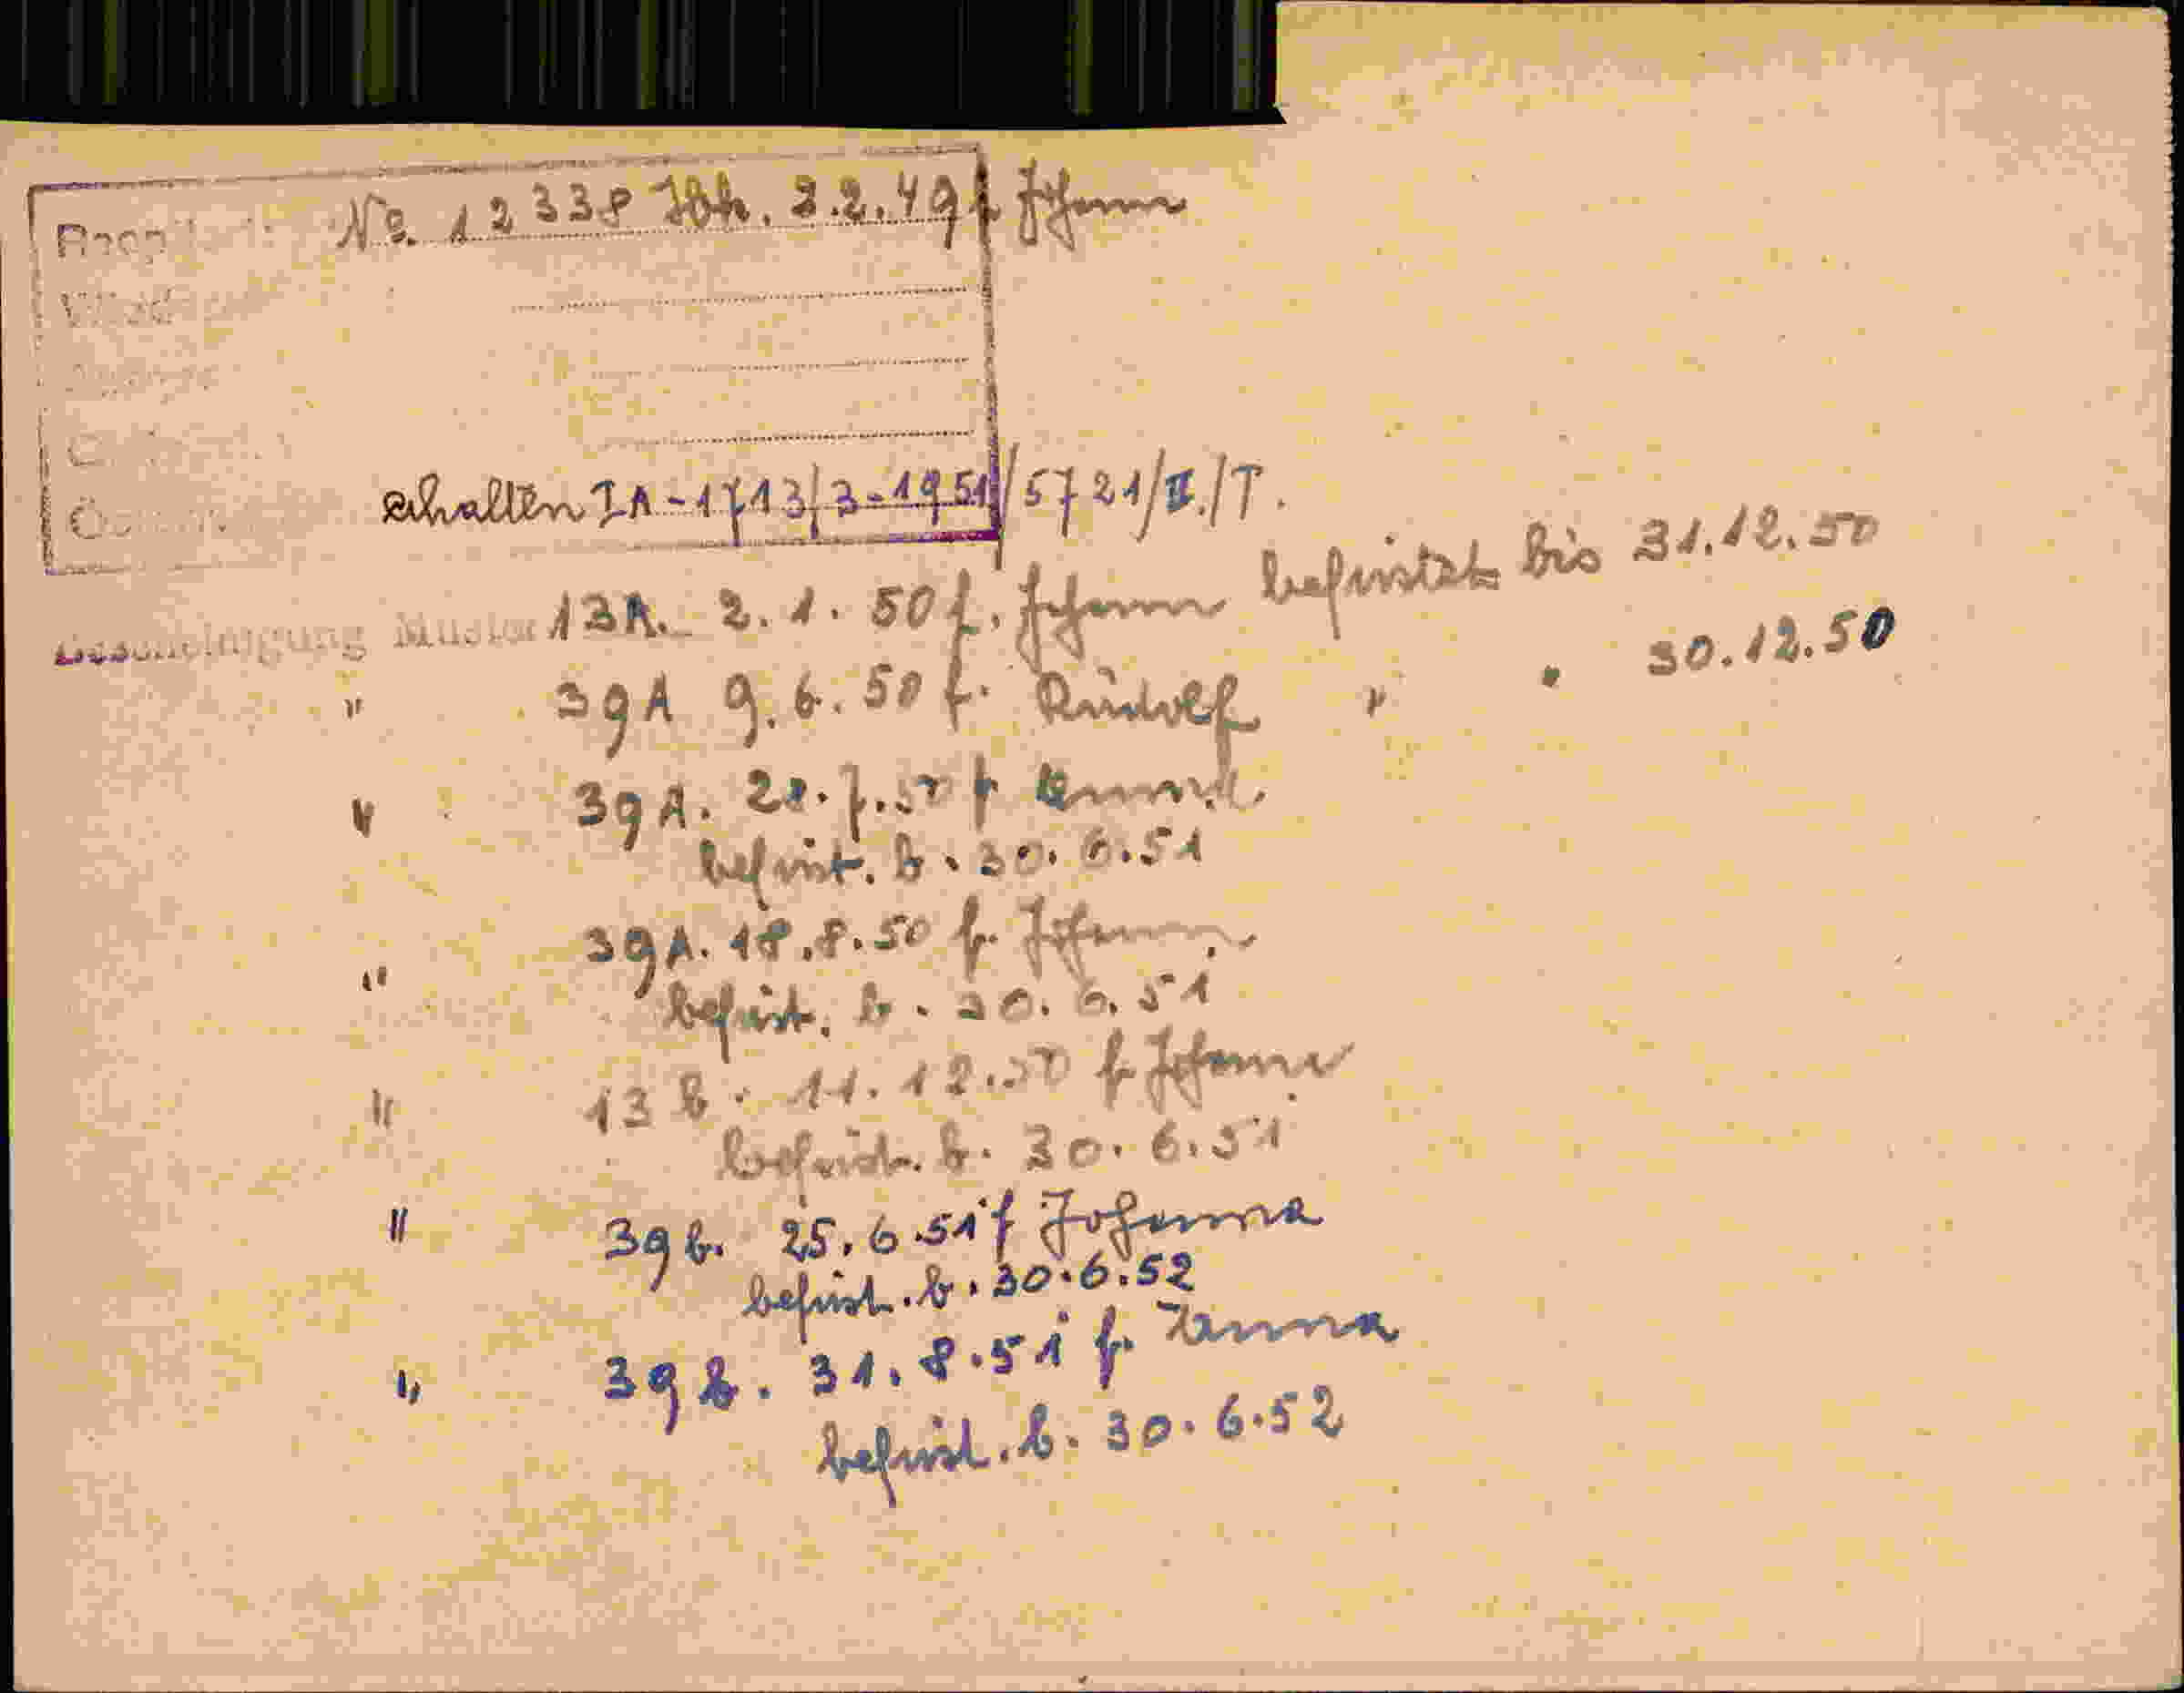 No. 12338 3.2.49 f Johann
erhalten IA-1713/3-1951/5721/II./T.
Bescheinigung Muster 13A. 2.1.50 f. Johann befristet bis 31.12.50
" 39A 9.6.50 f. Rudolf " " 30.12.50
" 39A. 20.7.50 f
befrist. b. 30.6.51
" 39A. 18.8.50 f. Johann
befrist. b. 30.6.51
" 13b. 11.12.50 f Johann
befrist. b. 30.6.51
" 39b. 25.6.51 f Johanna
befrist. b. 30.6.52
" 39b. 31.8.51 f. Anna
befrist. b. 30.6.52